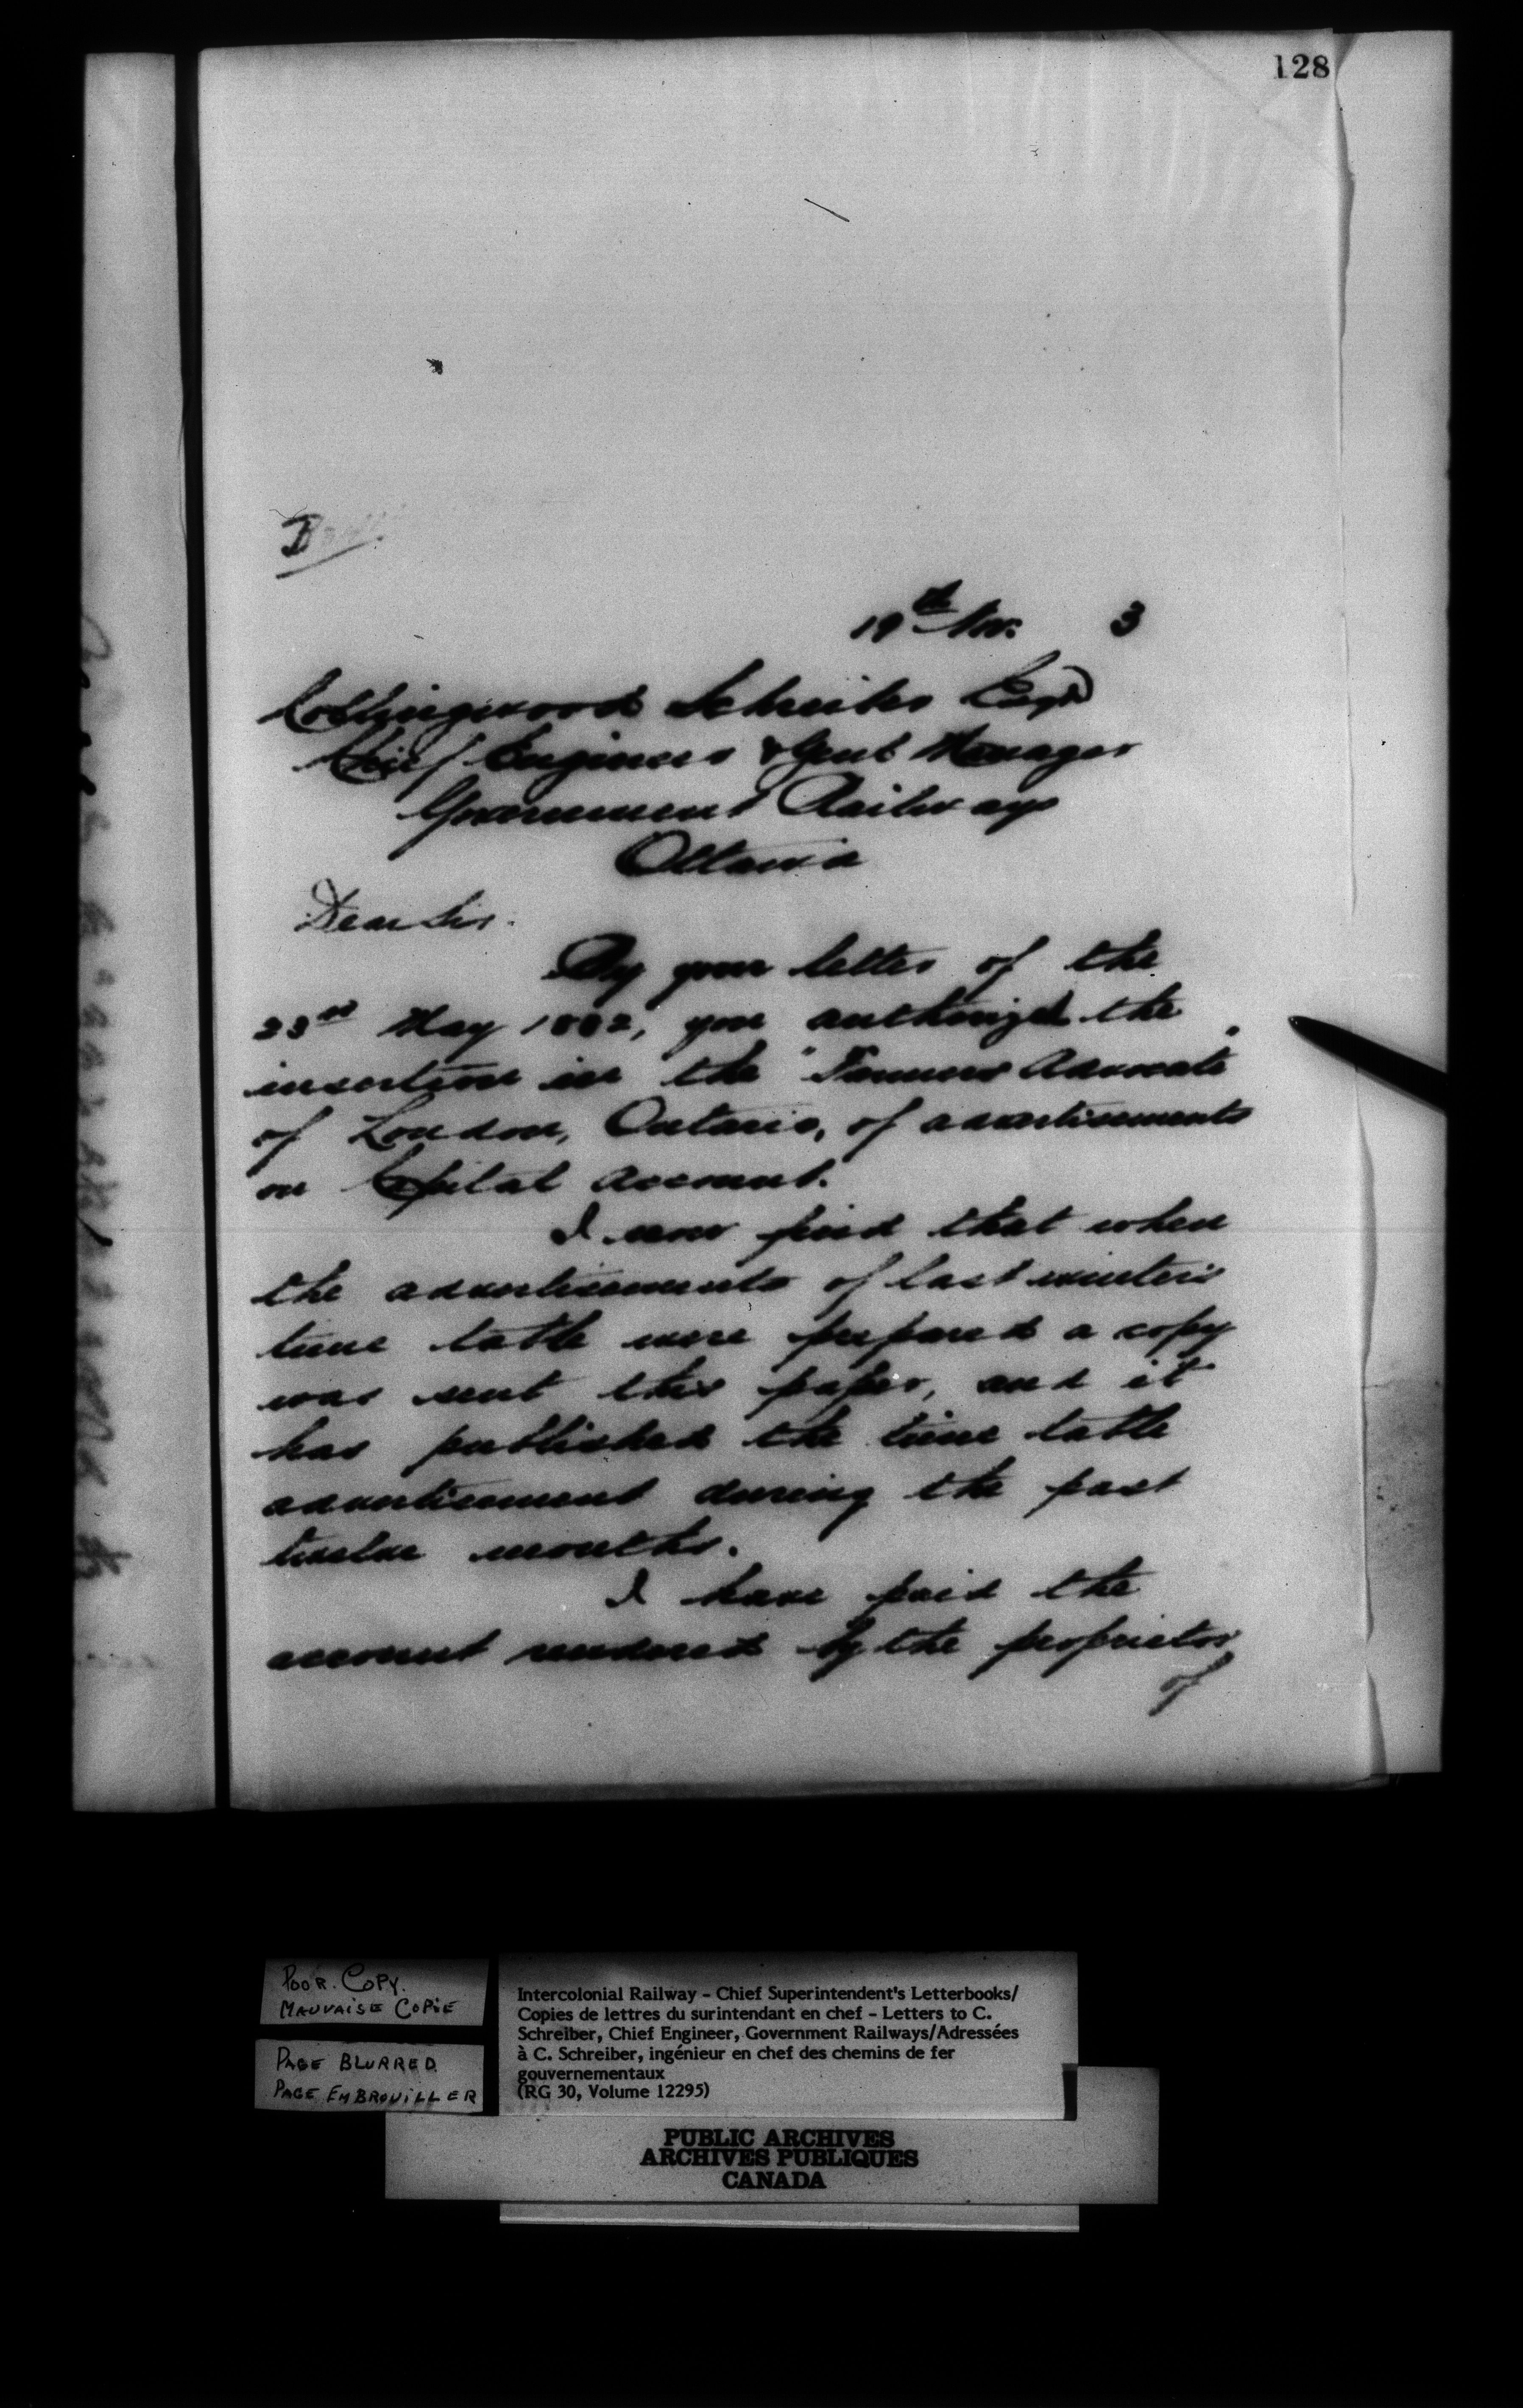 128
19th Nov. 3
Collingwood Schreiber Esqr
Chief Engineer & Genl Manager
Government Railways
Ottawa
Dear Sir.
By your letter of the
23rd May 1882, you authorized the
insertion in the "Farmers Advocate"
of London, Ontario, of advertisements
on Capital account.
I now find that when
the advertisements of last winter's
time table were prepared a copy
was sent this paper, and it
has published the time table
advertisement during the past
twelve months.
I have paid the
account rendered by the proprietor
of
POOR. COPY.
MAUVAISE COPIE
PAGE BLURRED
PAGE EMBROUILLER
Intercolonial Railway – Chief Superintendent's Letterbooks/
Copies de lettres du surintendant en chef – Letters to C.
Schreiber, Chief Engineer, Government Railways/Adressées
à C. Schreiber, ingénieur en chef des chemins de fer
gouvernementaux
(RG 30, Volume 12295)
PUBLIC ARCHIVES
ARCHIVES PUBLIQUES
CANADA